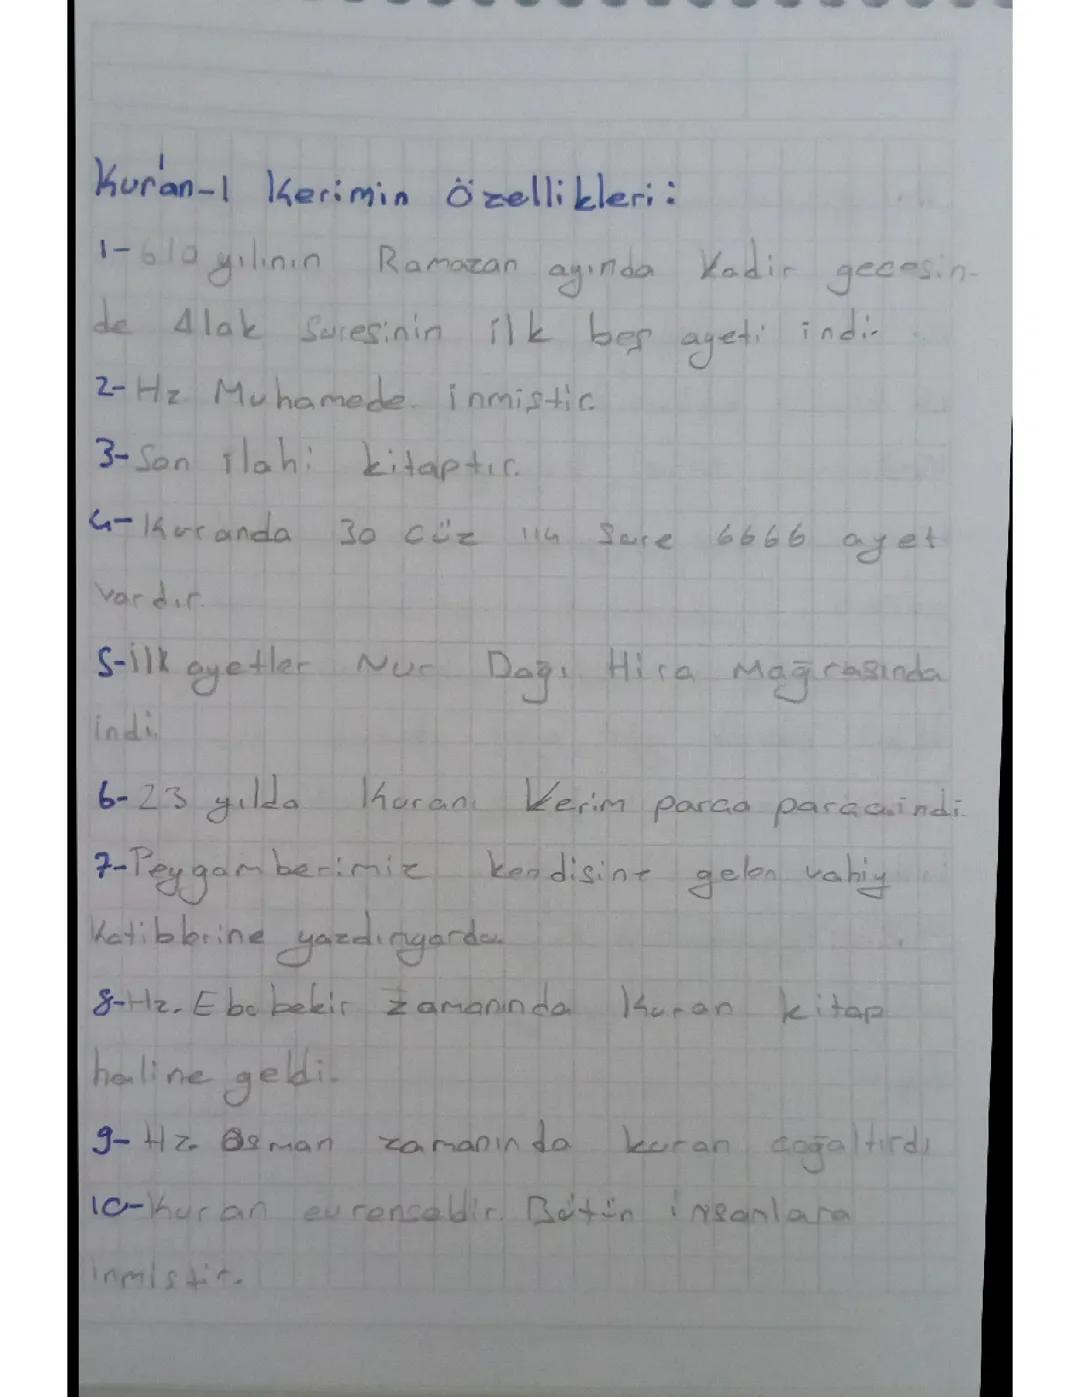 Kur'an-ı Kerimin Özellikleri:
1-610 yılının Ramazan ayında Kadir gecesin-
de Alak Suresinin ilk beş ayeti indi.
2-Hz Muhamede inmiştir.
3-Son ilahi kitaptır.
4-Kuranda 30 cüz 114 Sure 6666 ayet
vardır.
5-İlk ayetler Nur Dağı Hira Mağrasında
indi.
6-23 yılda Kuranı Kerim parça parça indi.
7-Peygamberimiz kendisine gelen vahiy
Katiblerine yazdırıyordu.
8-Hz. Ebubekir zamanında Kuran kitap
haline geldi.
9-Hz. Osman zamanında kuran çoğaltırdı
10-Kuran evrenseldir. Bütün insanlara
inmiştir.